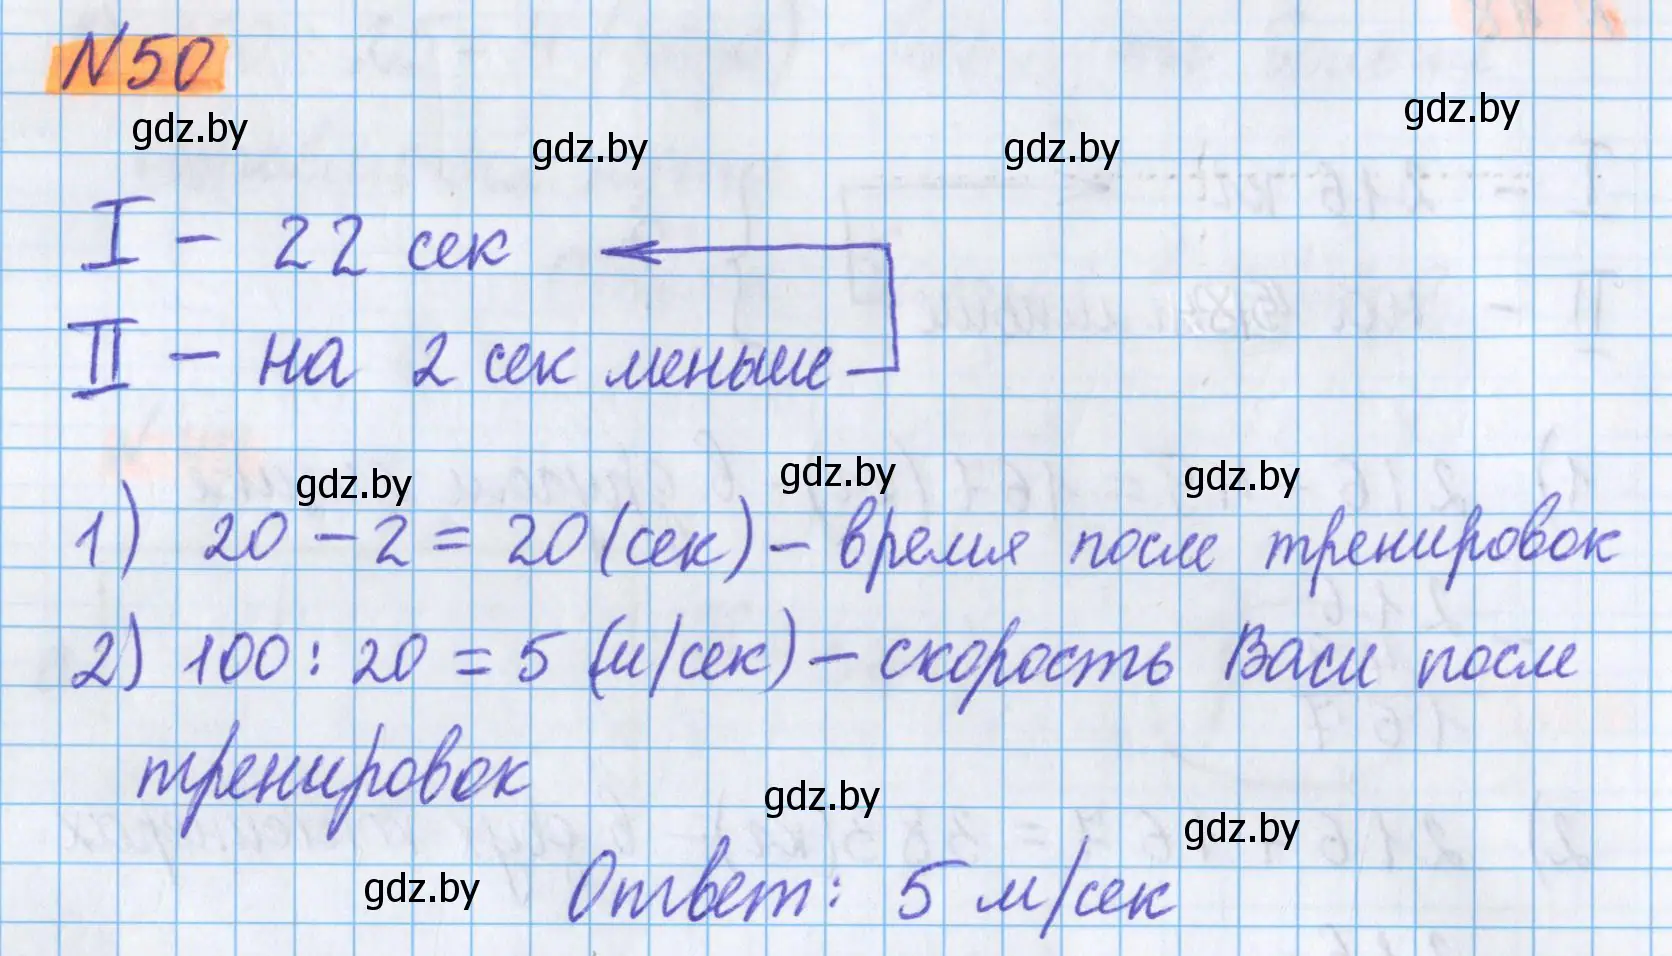 N 50
gdz.by
gdz.by
gdz.by
gdz.by
I – 22 сек
II – на 2 сек меньше
gdz.by
gdz.by
gdz.by
1) 20 – 2 = 20 (сек) – время после тренировок
2) 100 : 20 = 5 (м/сек) – скорость Васи после
тренировок
gdz.by
gdz.by
gdz.by
Ответ: 5 м/сек